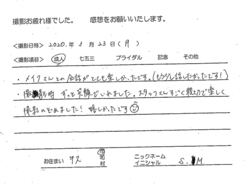 撮影お疲れ様でした。 感想をお願いいたします。
<撮影日時> 2020年 3月 23日 (月)
<撮影項目> 成人 七五三 ブライダル 記念 その他
・メイクさんとの会話がとても楽しかったです。(もう少し話したかったです!)
・撮影時 ずっと笑顔でいれました。スタッフさんすごく親切で楽しく
撮影できました! 嬉しかったです
お住まい 市 町 村 ニックネーム イニシャル S. M